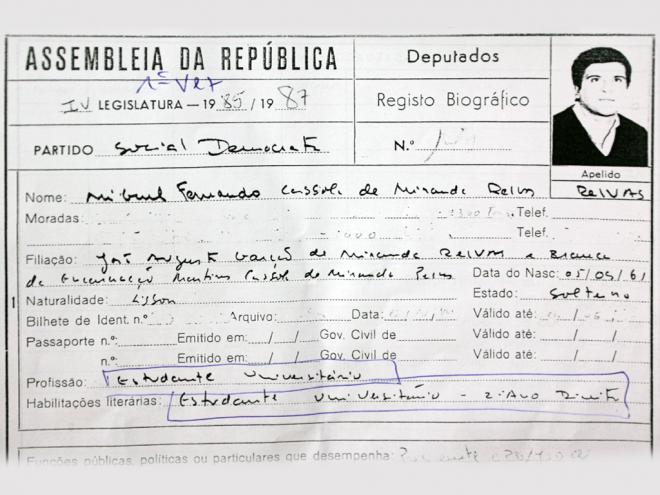 ASSEMBLEIA DA REPÚBLICA
Deputados
1ª Vez
IV LEGISLATURA — 1985/1987
Registo Biográfico
PARTIDO Social Democrata
N.º
Apelido
RELVAS
Nome: Miguel Fernando Cassola de Miranda Relvas
Moradas: Telef.
Telef.
Filiação: João Augusto Garção de Miranda Relvas e Branca
da Encarnação Martins Cassola de Miranda Relvas Data do Nasc: 05/09/61
1 Naturalidade: Lisboa Estado: Solteiro
Bilhete de Ident. n.º Arquivo: Data: Válido até:
Passaporte n.º: Emitido em: / / Gov. Civil de Válido até: / /
n.º: Emitido em: / / Gov. Civil de Válido até: / /
Profissão: Estudante Universitário
Habilitações literárias: Estudante Universitário - 2º Ano Direito
Funções públicas, políticas ou particulares que desempenha: